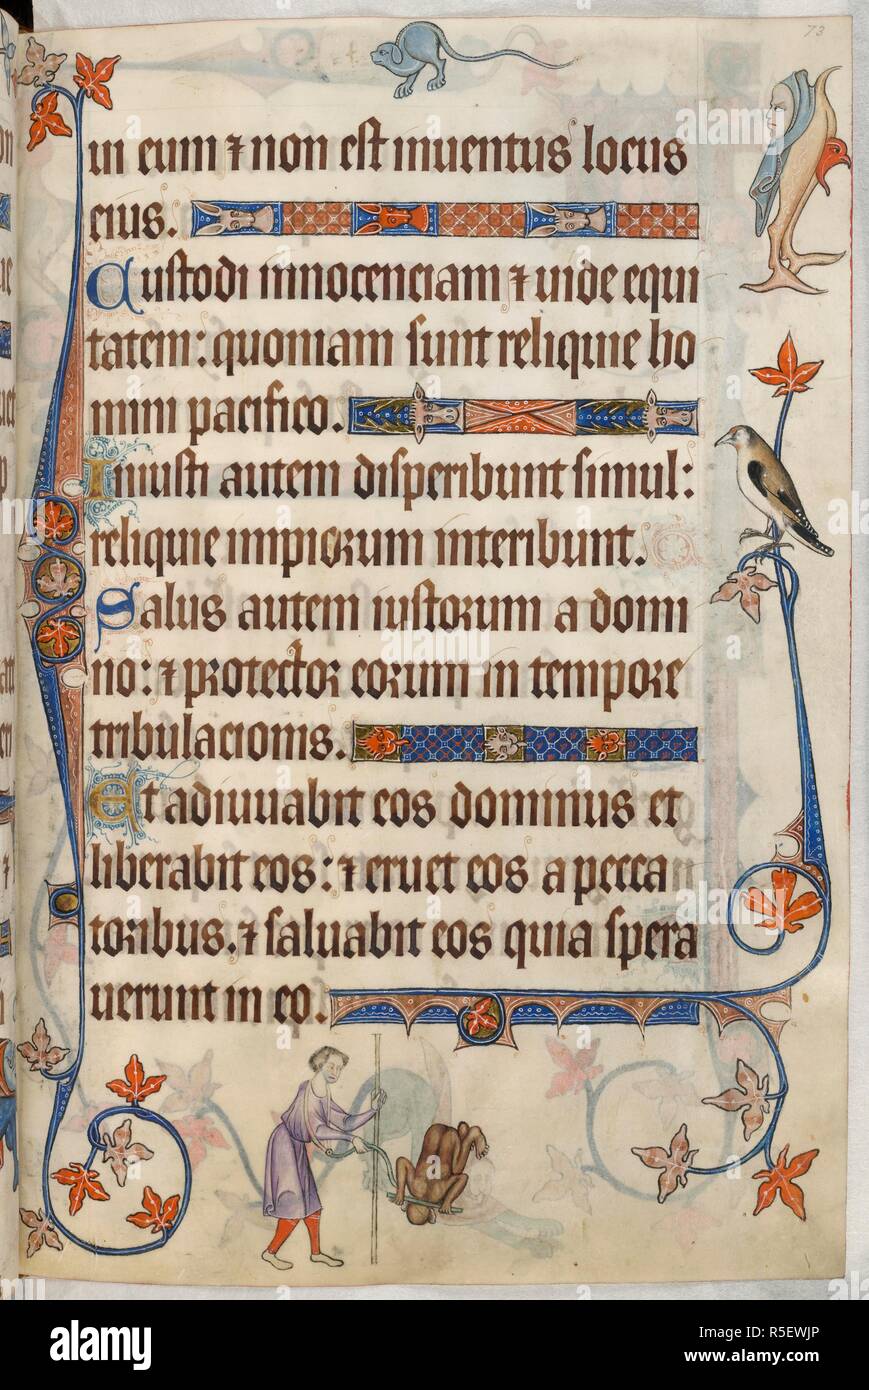 73
ui eum ⁊ non est inuentus locus
eius.
Custodi innocenciam ⁊ uide equi
tatem: quoniam sunt reliquie ho
mini pacifico.
Iniusti autem disperibunt simul:
reliquie impiorum interibunt.
Salus autem iustorum a domi
no: ⁊ protector eorum in tempore
tribulacionis.
Et adiuuabit eos dominus et
liberabit eos: ⁊ eruet eos a pecca
toribus. ⁊ saluabit eos quia spera
uerunt in eo.
alamy
Image ID: R5EWJP
www.alamy.com